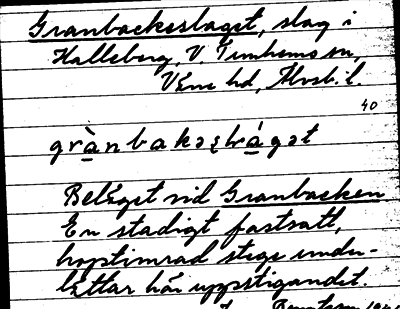 Granbackeslaget, slag i
Halleberg, V. Tunhems sn,
Väne hd, Älvsb. l.
40
grànbakəslágət
Beläget vid Granbacken
En stadigt fastsatt,
hoptimrad stege under-
lättar här uppstigandet.